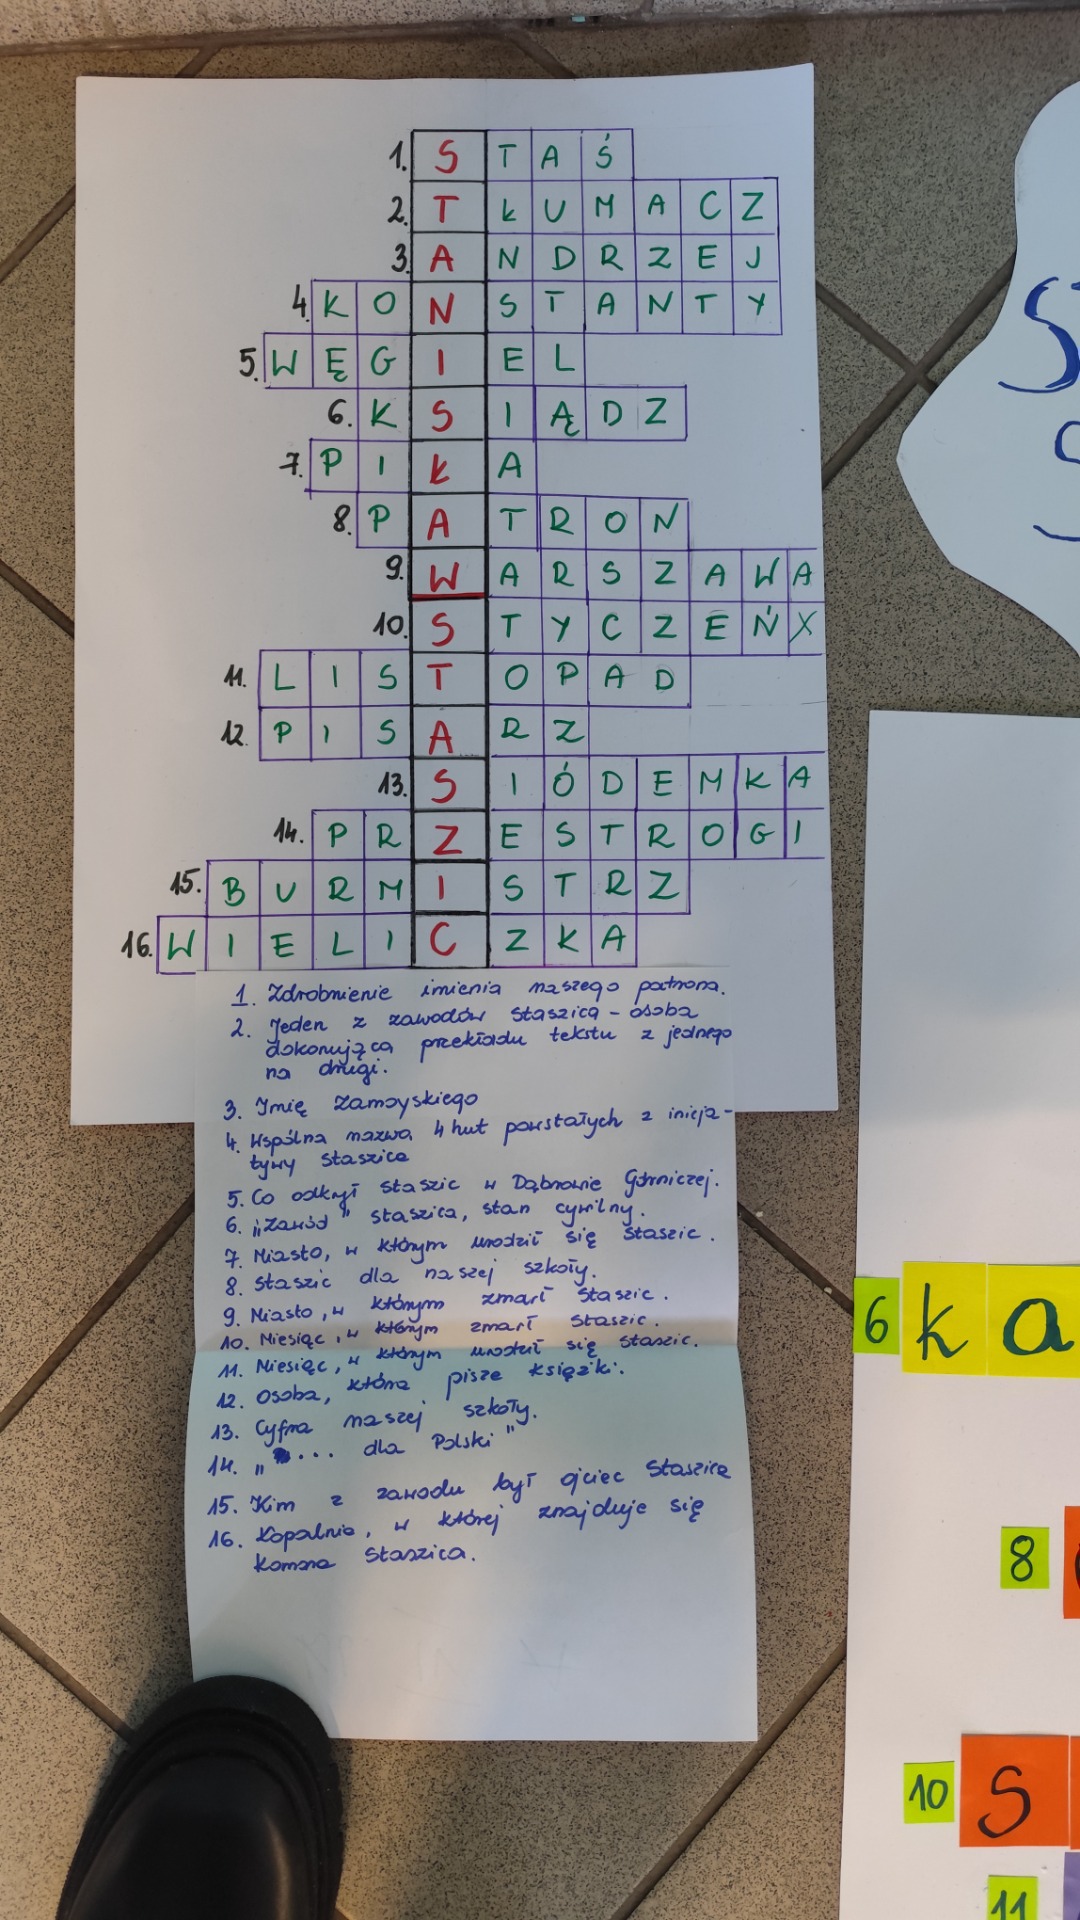 1. S T A Ś
2. T Ł U M A C Z
3. A N D R Z E J
4. K O N S T A N T Y
5. W Ę G I E L
6. K S I Ą D Z
7. P I Ł A
8. P A T R O N
9. W A R S Z A W A
10. S T Y C Z E Ń X
11. L I S T O P A D
12. P I S A R Z
13. S I Ó D E M K A
14. P R Z E S T R O G I
15. B U R M I S T R Z
16. W I E L I C Z K A
1. Zdrobnienie imienia naszego patrona.
2. Jeden z zawodów Staszica - osoba
dokonująca przekładu tekstu z jednego
na drugi.
3. Imię Zamoyskiego
4. Wspólna nazwa 4 hut powstałych z inicja-
tywy Staszica
5. Co odkrył Staszic w Dąbrowie Górniczej.
6. „Zawód" Staszica, stan cywilny.
7. Miasto, w którym urodził się Staszic.
8. Staszic dla naszej szkoły.
9. Miasto, w którym zmarł Staszic.
10. Miesiąc, w którym zmarł Staszic.
11. Miesiąc, w którym urodził się Staszic.
12. Osoba, która pisze książki.
13. Cyfra naszej szkoły.
14. „... dla Polski"
15. Kim z zawodu był ojciec Staszica
16. Kopalnia, w której znajduje się
Komora Staszica.
S
S
6 k a
8
10 S
11